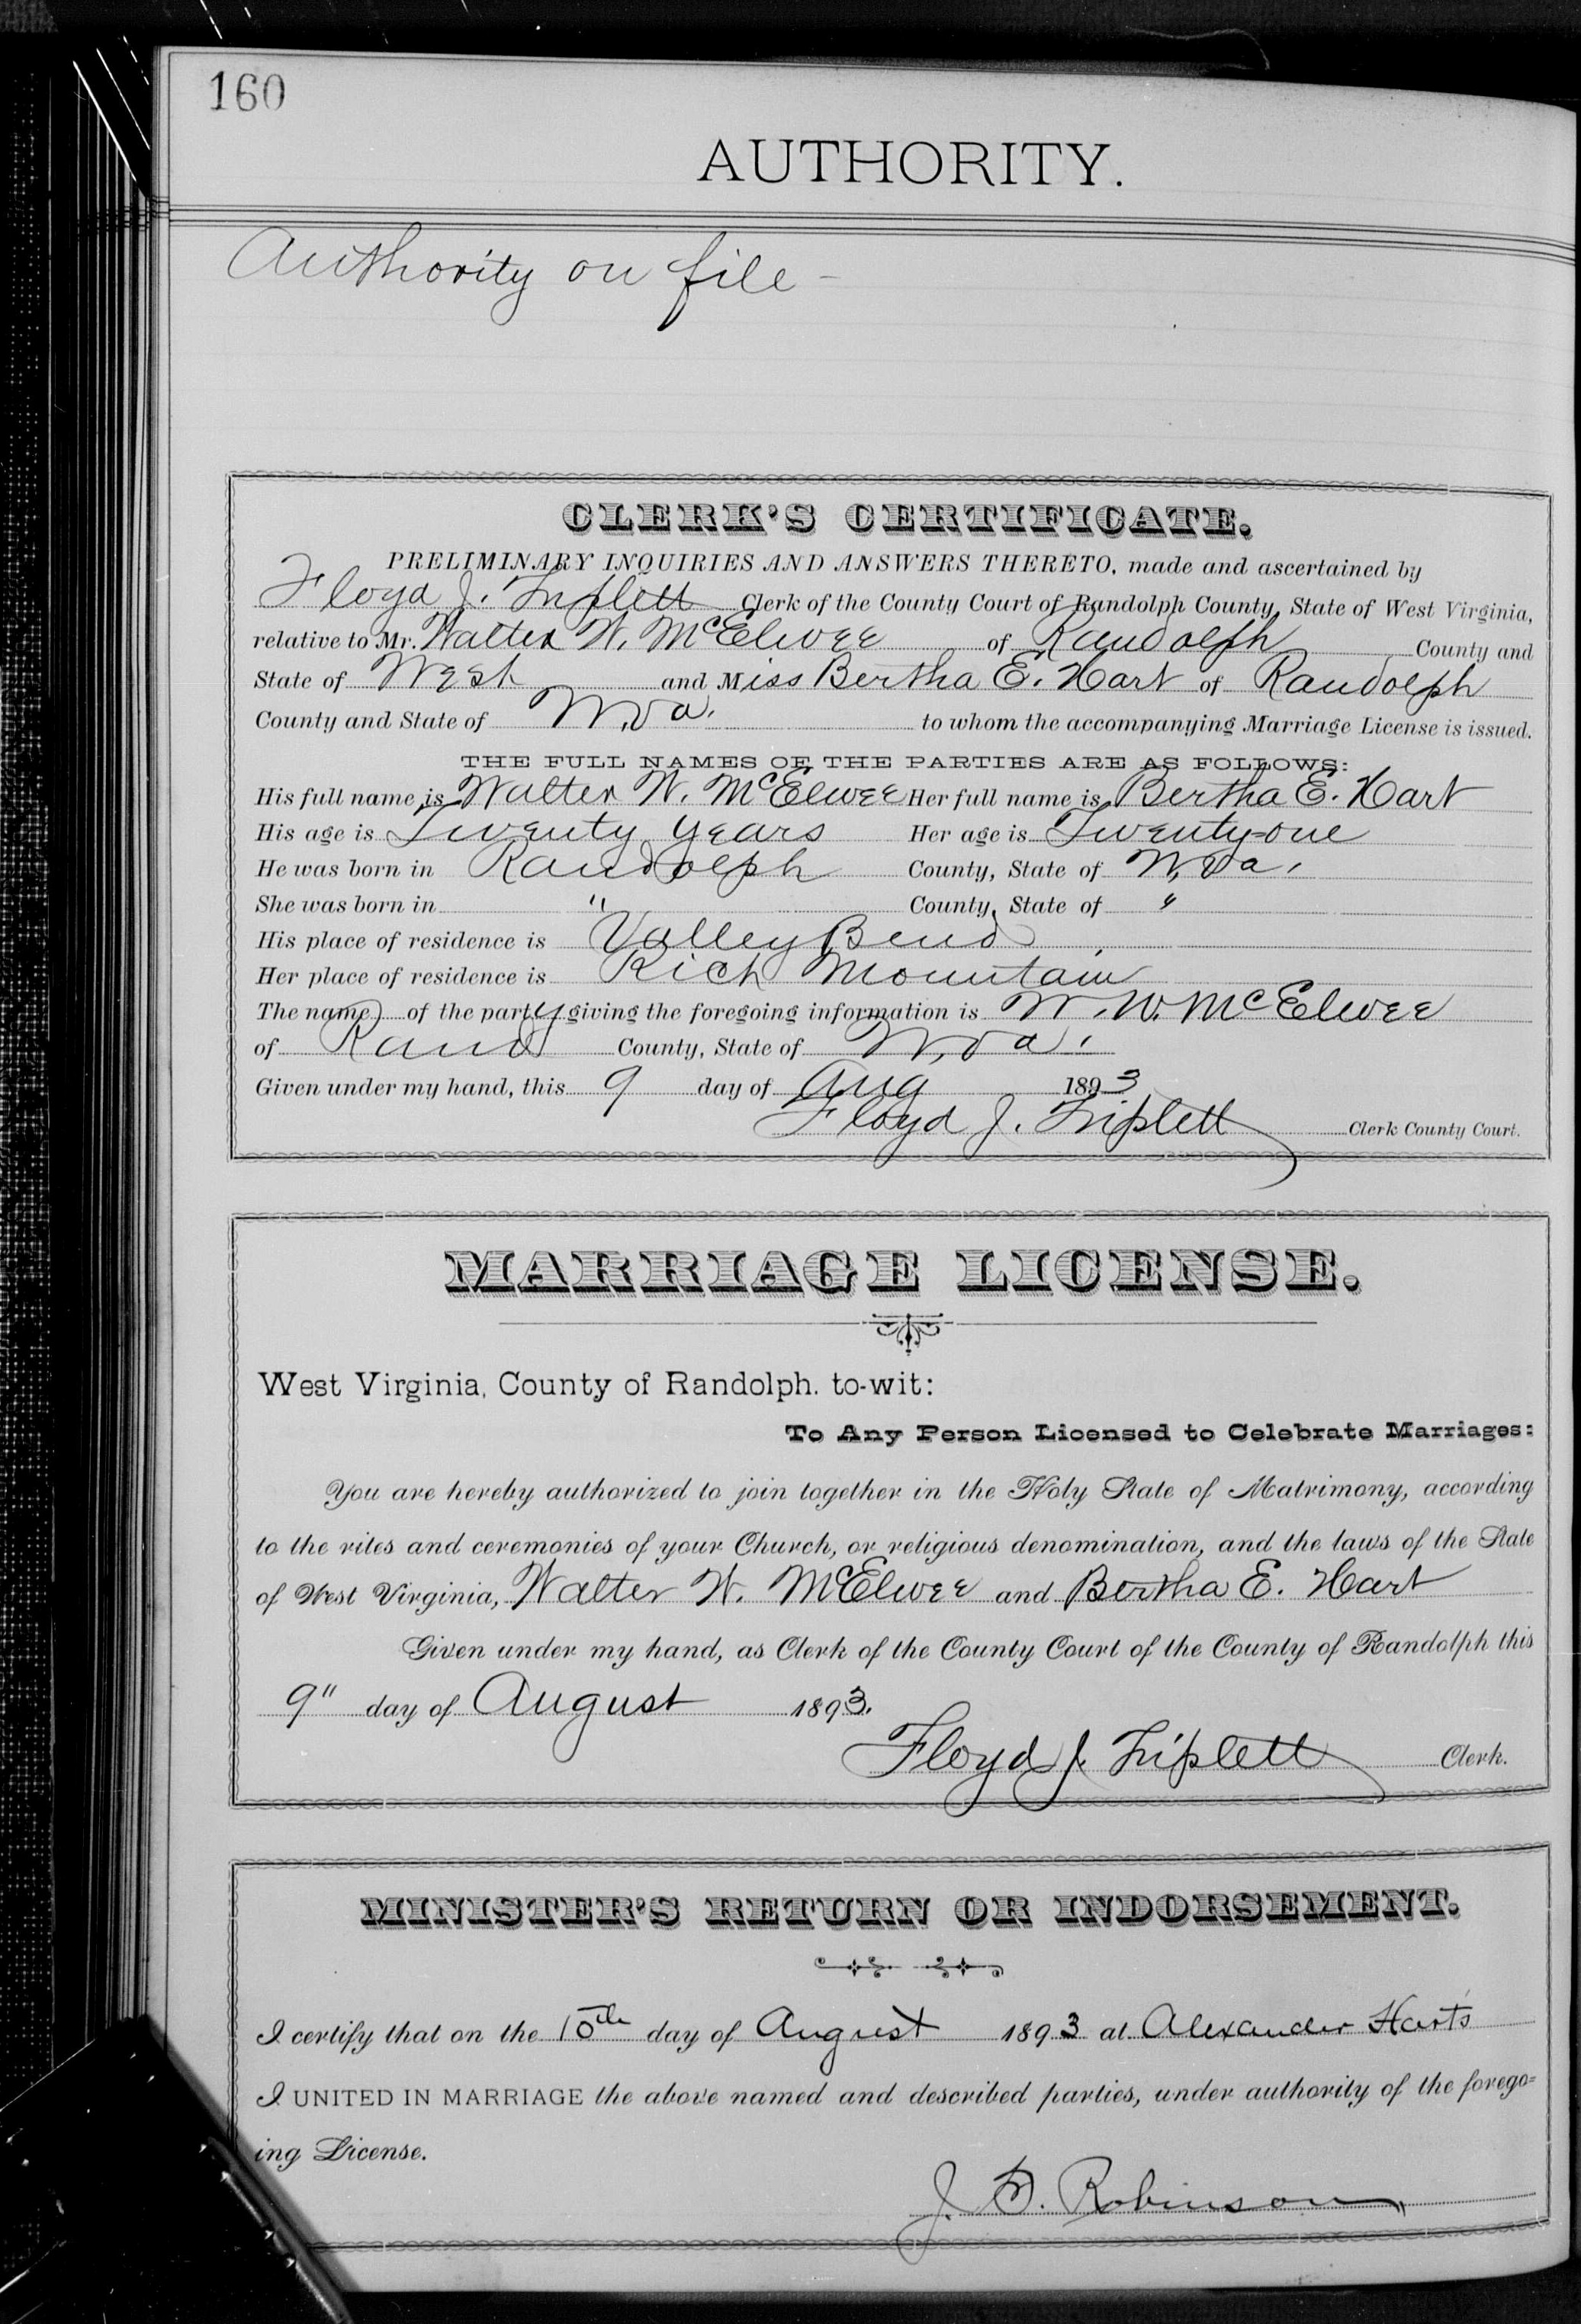 160
AUTHORITY.
Authority on file -
CLERK'S CERTIFICATE.
PRELIMINARY INQUIRIES AND ANSWERS THERETO, made and ascertained by
Floyd J. Triplett Clerk of the County Court of Randolph County, State of West Virginia,
relative to Mr. Walter W. McElwee of Randolph County and
State of West and Miss Bertha E. Hart of Randolph
County and State of W.Va. to whom the accompanying Marriage License is issued.
THE FULL NAMES OF THE PARTIES ARE AS FOLLOWS:
His full name is Walter W. McElwee Her full name is Bertha E. Hart
His age is Twenty years Her age is Twenty-one
He was born in Randolph County, State of W.Va.
She was born in " County, State of "
His place of residence is Valley Bend
Her place of residence is Rich Mountain
The name of the party giving the foregoing information is W. W. McElwee
of Rand County, State of W.Va.
Given under my hand, this 9 day of Aug 1893
Floyd J. Triplett Clerk County Court.
MARRIAGE LICENSE.
West Virginia, County of Randolph. to-wit:
To Any Person Licensed to Celebrate Marriages:
You are hereby authorized to join together in the Holy State of Matrimony, according
to the rites and ceremonies of your Church, or religious denomination, and the laws of the State
of West Virginia, Walter W. McElwee and Bertha E. Hart
Given under my hand, as Clerk of the County Court of the County of Randolph this
9" day of August 1893.
Floyd J. Triplett Clerk.
MINISTER'S RETURN OR INDORSEMENT.
I certify that on the 10th day of August 1893 at Alexander Harts
I UNITED IN MARRIAGE the above named and described parties, under authority of the forego-
ing License.
J. Robinson